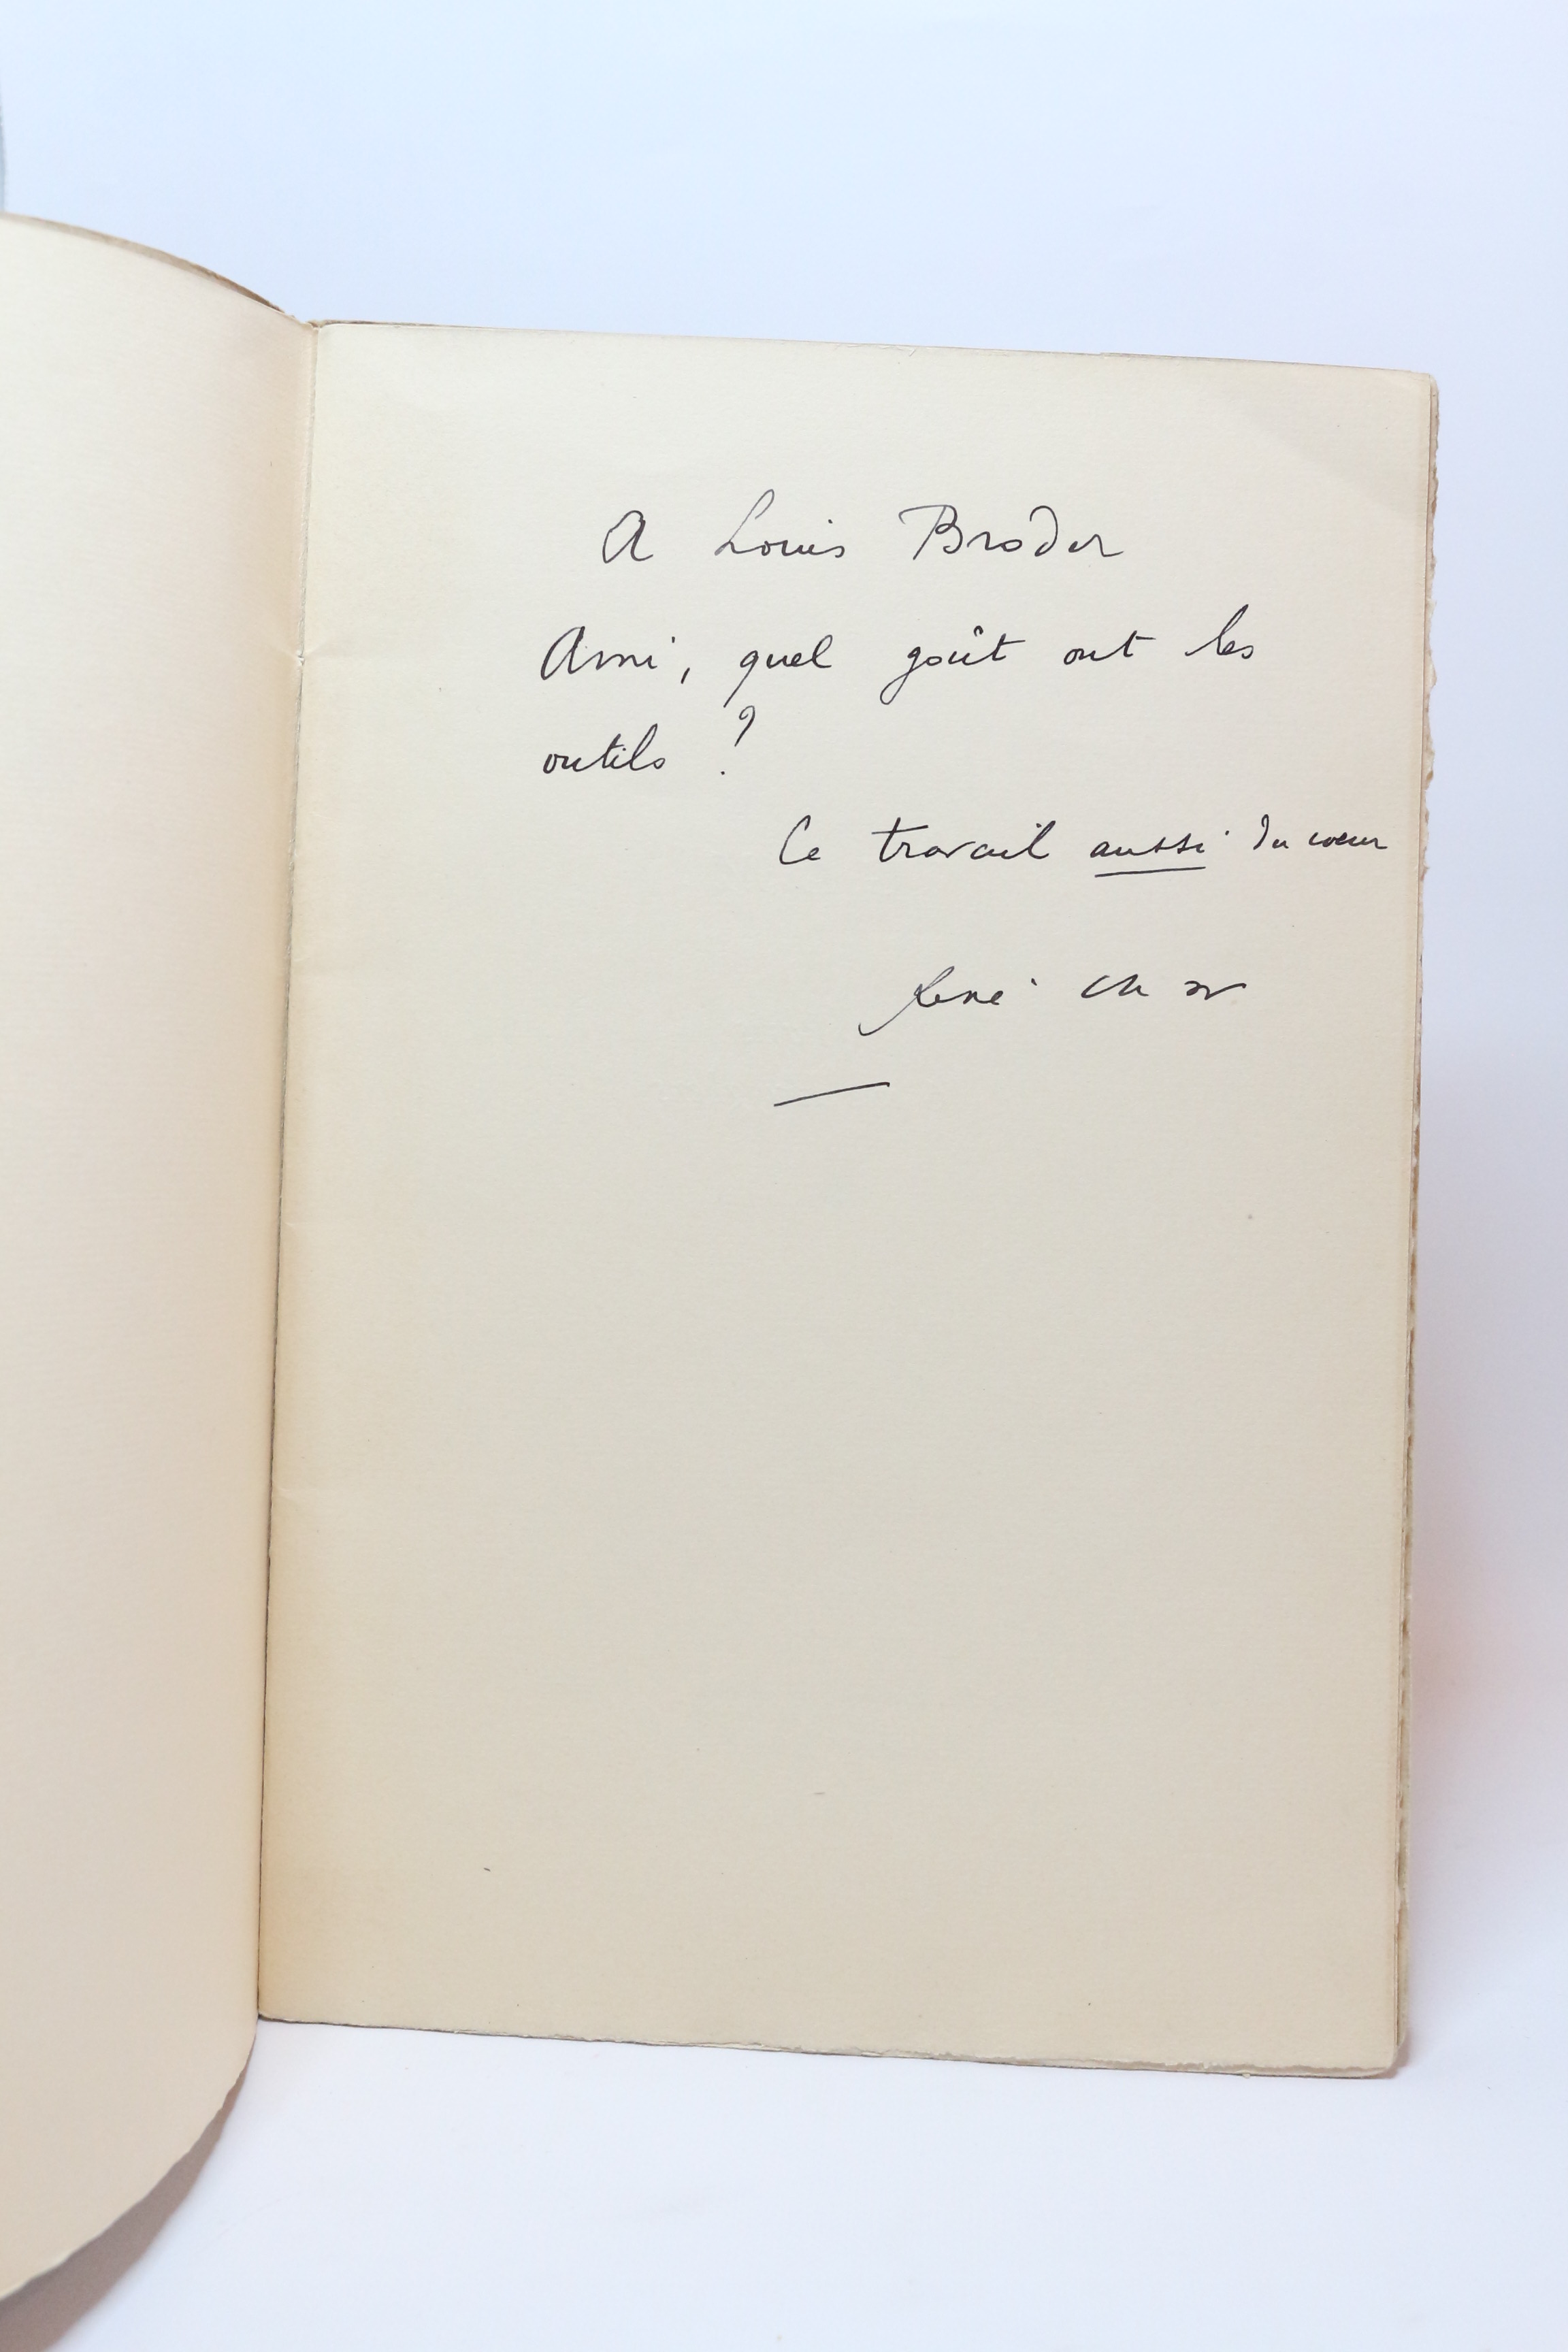 A Louis Broder
Ami, quel goût ont les
outils ?
Ce travail aussi du coeur
René Char